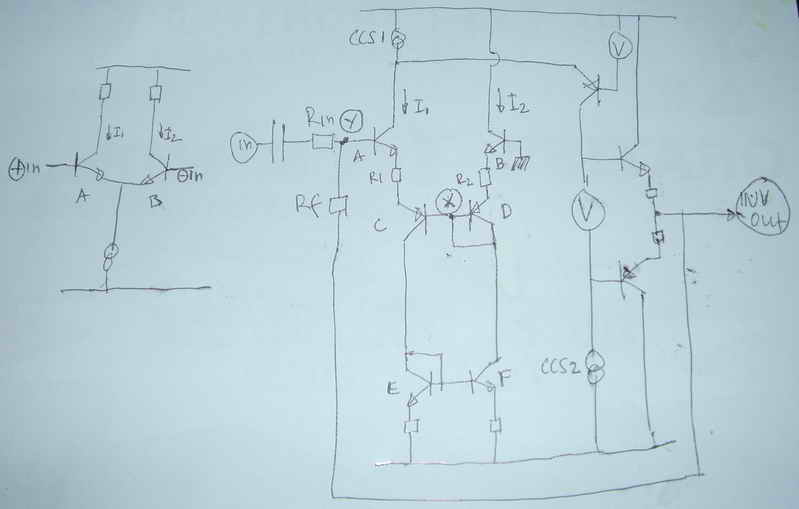 I1
I2
⊕in
⊖in
A
B
CCS1
I1
I2
V
in
Rin
Y
A
B
R1
R2
Rf
C
X
D
V
INV
OUT
E
F
CCS2